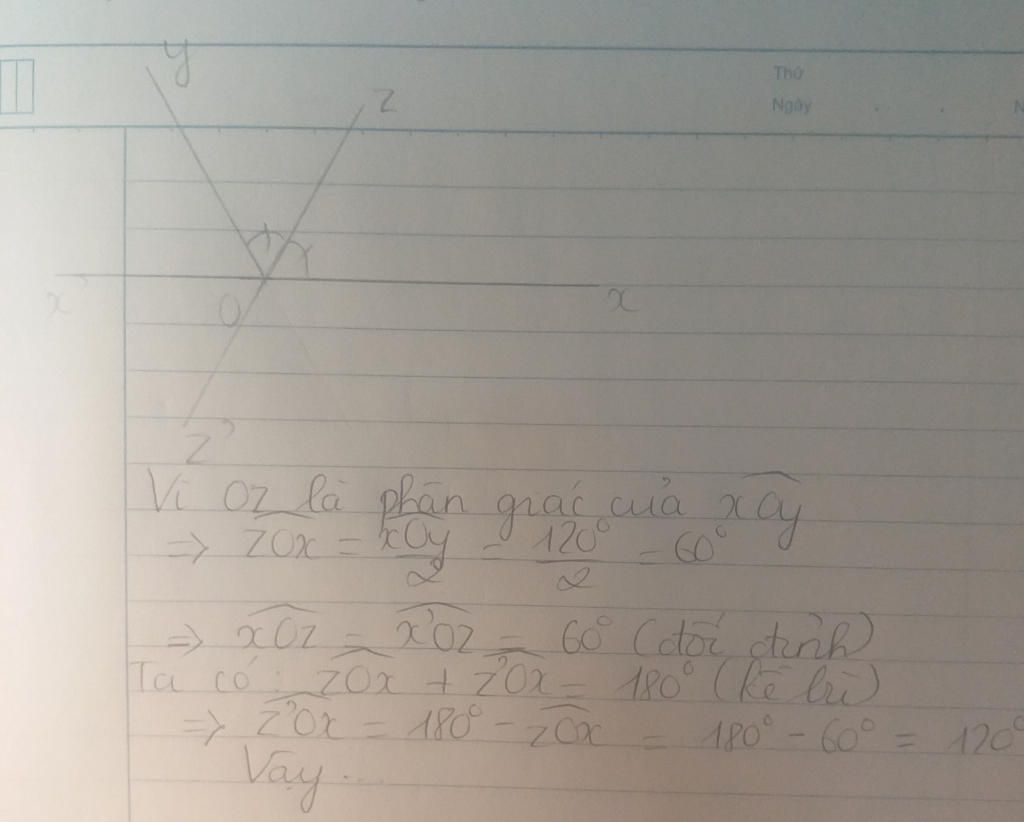 y
z
Thứ
Ngày . .
N
x'
O
x
z'
Vì Oz là phân giác của xOy
=> zOx = xOy/2 = 120°/2 = 60°
=> xOz = x'Oz = 60° (đối đỉnh)
Ta có: zOx + z'Ox = 180° (kề bù)
=> z'Ox = 180° - zOx = 180° - 60° = 120°
Vậy ...